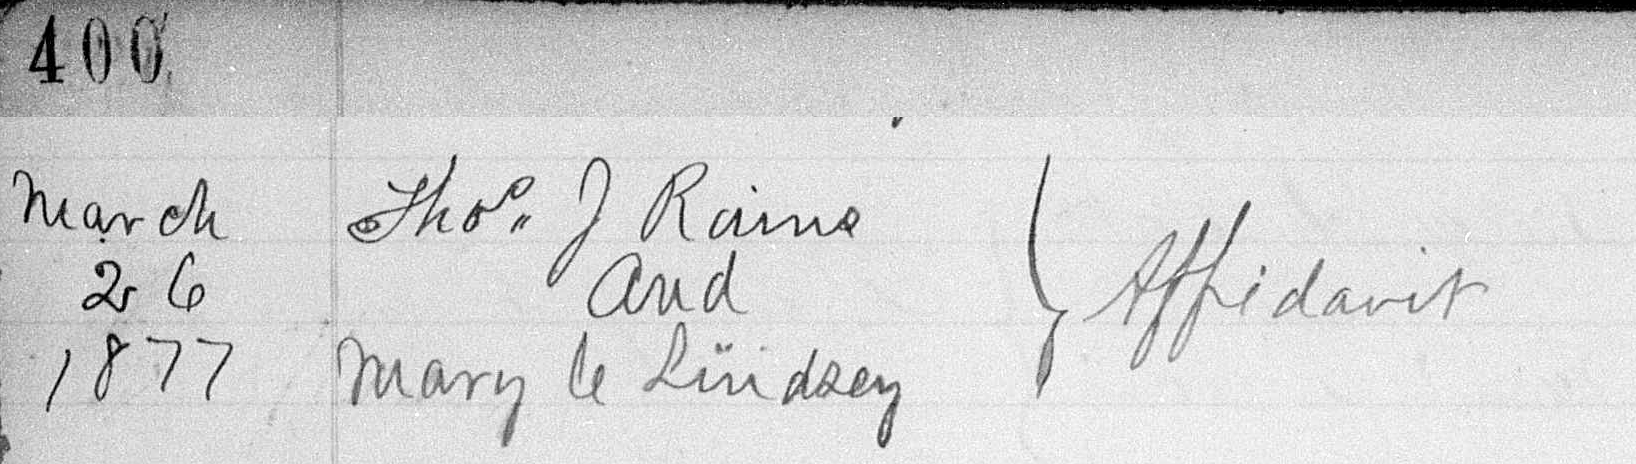 400
March Thos. J Rains
26 and } Affidavit
1877 Mary C Lindsey